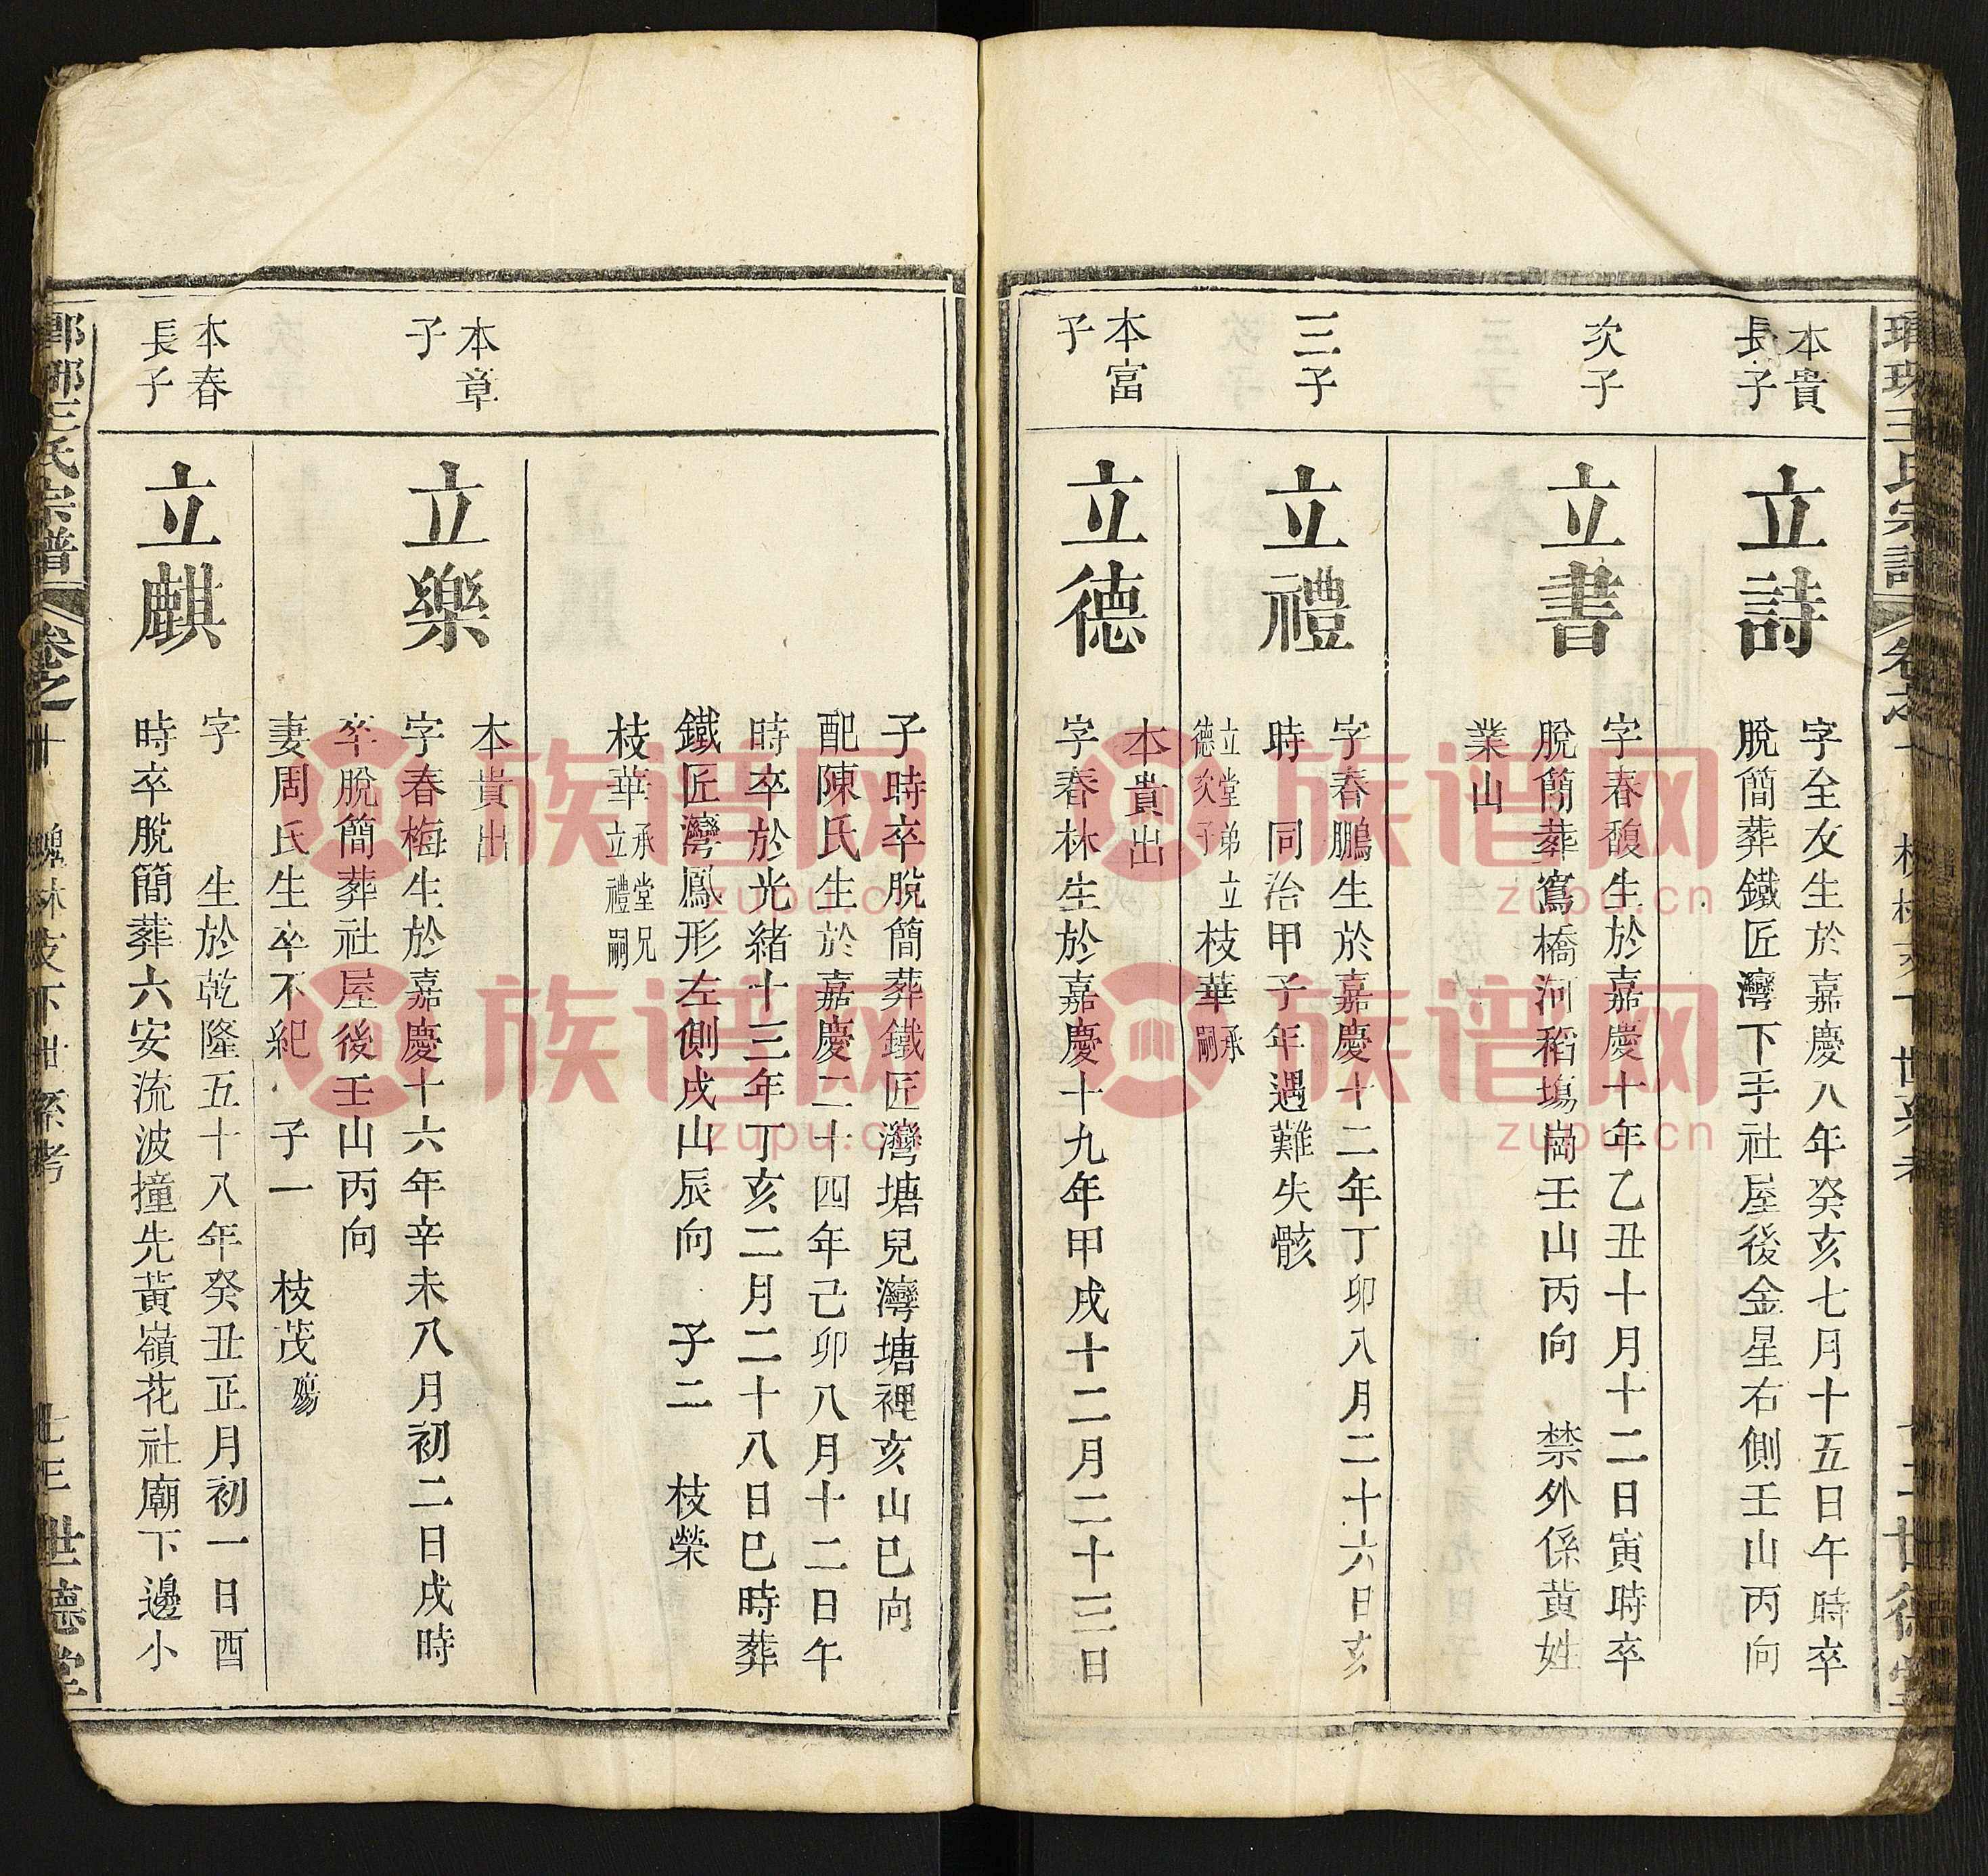 本貴
長子
立詩
字全友生於嘉慶八年癸亥七月十五日午時卒
脫簡葬鐵匠灣下手社屋後金星右側壬山丙向
次子
立書
字春馥生於嘉慶十年乙丑十月十二日寅時卒
脫簡葬窵橋河稻塲崗壬山丙向 禁外係黄姓
業山
三子
立禮
字春鵬生於嘉慶十二年丁卯八月二十六日亥
時 同治甲子年遇難失骸
立堂弟立
德次子
枝華
承
嗣
本富
子
立德
本貴出
字春林生於嘉慶十九年甲戌十二月二十三日
子時卒脫簡葬鐵匠灣塘兒灣塘裡亥山巳向
配陳氏生於嘉慶二十四年己卯八月十二日午
時卒於光緒十三年丁亥二月二十八日巳時葬
鐵匠灣鳳形左側戌山辰向 子二 枝榮
枝華
承堂兄
立禮嗣
本章
子
立樂
本貴出
字春梅生於嘉慶十六年辛未八月初二日戌時
卒脫簡葬社屋後壬山丙向
妻周氏生卒不紀 子一 枝茂殤
本春
長子
立麒
字 生於乾隆五十八年癸丑正月初一日酉
時卒脫簡葬六安流波撞先黃嶺花社廟下邊小
王氏宗譜 卷之十 林支下世系考 世德堂
族谱网
zupu.cn
族谱网
zupu.cn
族谱网
zupu.cn
族谱网
zupu.cn